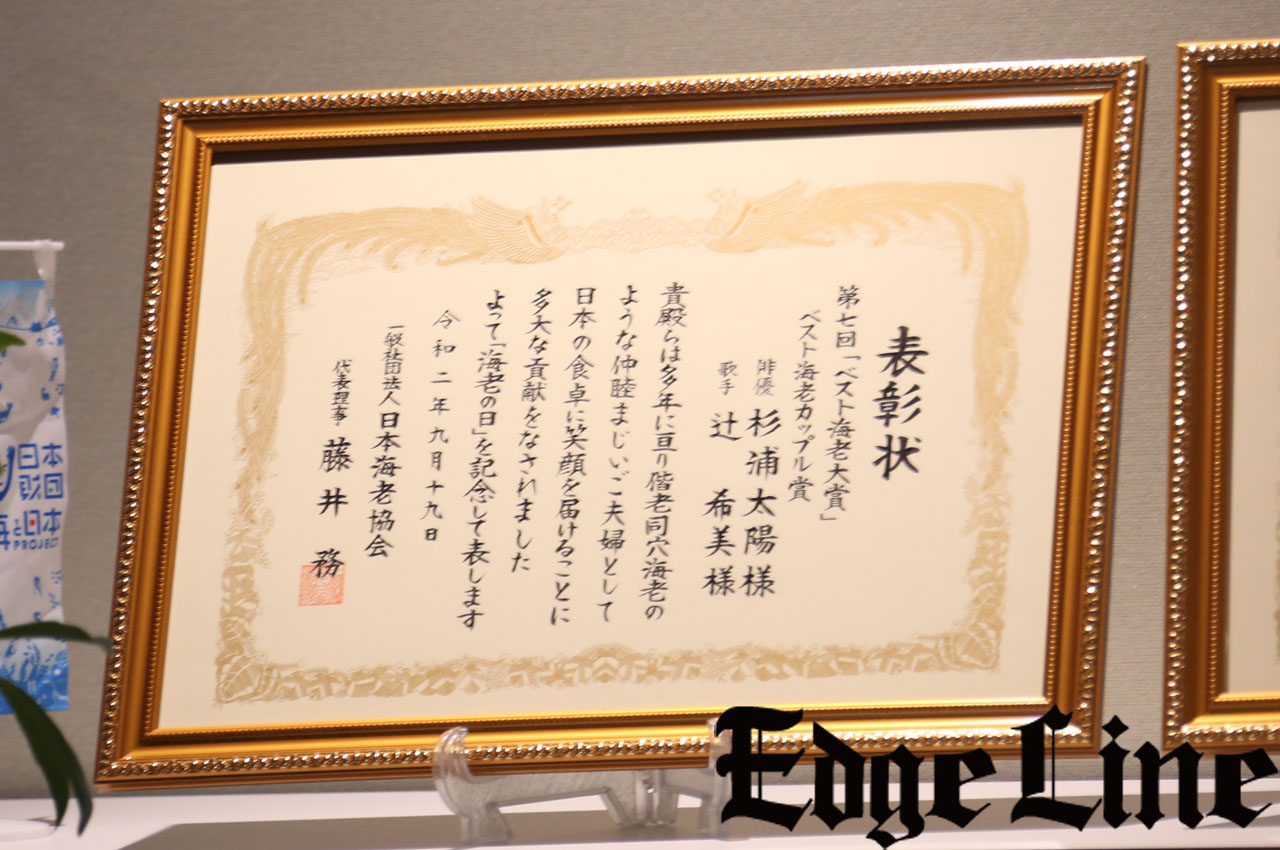 表彰状
第七回「ベスト海老大賞」
ベスト海老カップル賞
俳優 杉浦太陽様
歌手 辻 希美様
貴殿らは多年に亘り偕老同穴海老の
ような仲睦まじいご夫婦として
日本の食卓に笑顔を届けることに
多大な貢献をなされました
よって「海老の日」を記念して表します
令和二年九月十九日
一般社団法人 日本海老協会
代表理事 藤井 務
日本
財団
海と日本
PROJECT
Edge Line